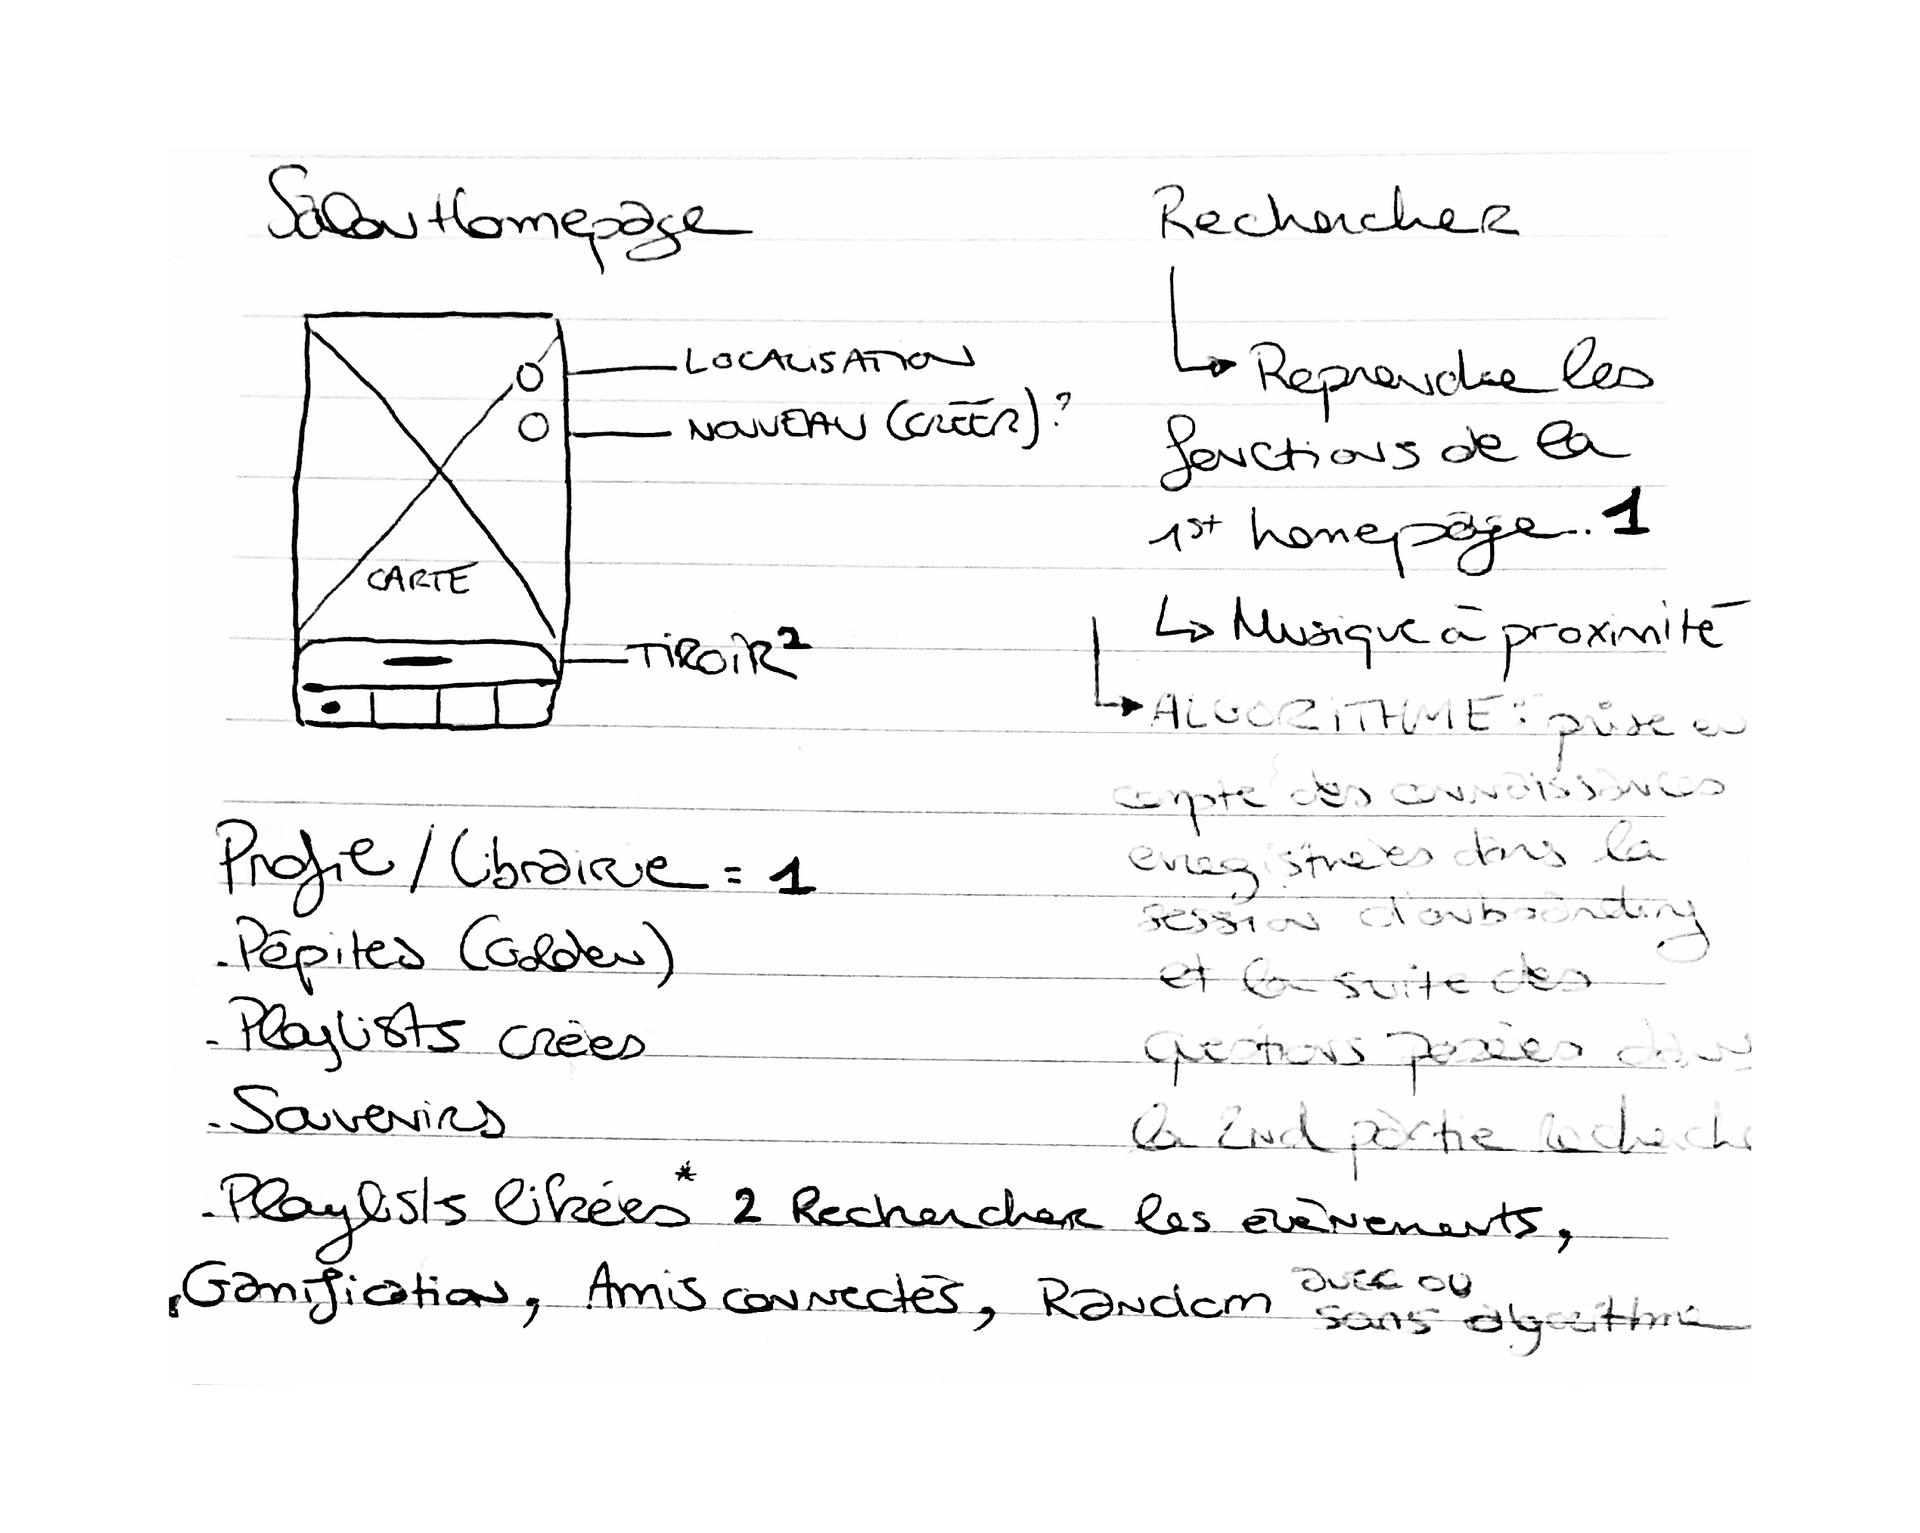 Salon Homepage
LOCALISATION
NOUVEAU (CRÉER)?
CARTE
TIROIR 2
Profil / Librairie = 1
. Pépites (Golden)
- Playlists créées
. Souvenirs
. Playlists likées * 2 Rechercher les evènements,
. Gamification, Amis connectés, Random avec ou
sans algorithme
Rechercher
Reprendre les
fonctions de la
1st homepage. 1
Musique à proximité
ALGORITHME : prise en
compte des connaissances
enregistrées dans la
session d'onboarding
et la suite des
questions posées dans
la 2nd partie recherche